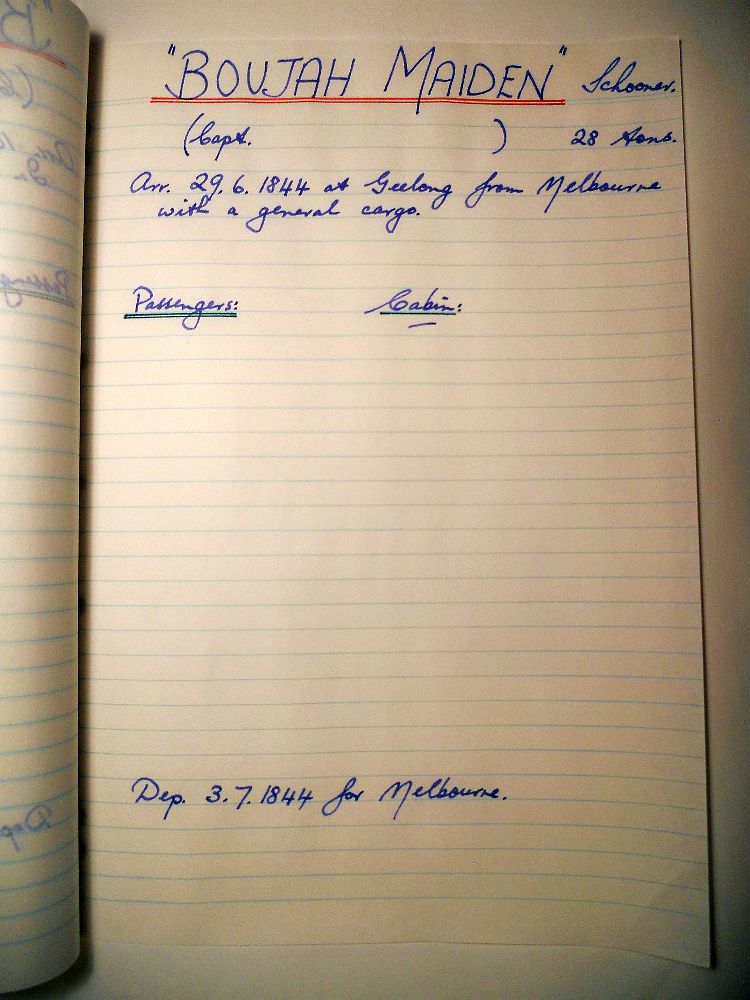 "BOUJAH MAIDEN" Schooner.
(Capt. ) 28 tons.
Arr. 29.6.1844 at Geelong from Melbourne
with a general cargo.
Passengers: Cabin:
Dep. 3.7.1844 for Melbourne.